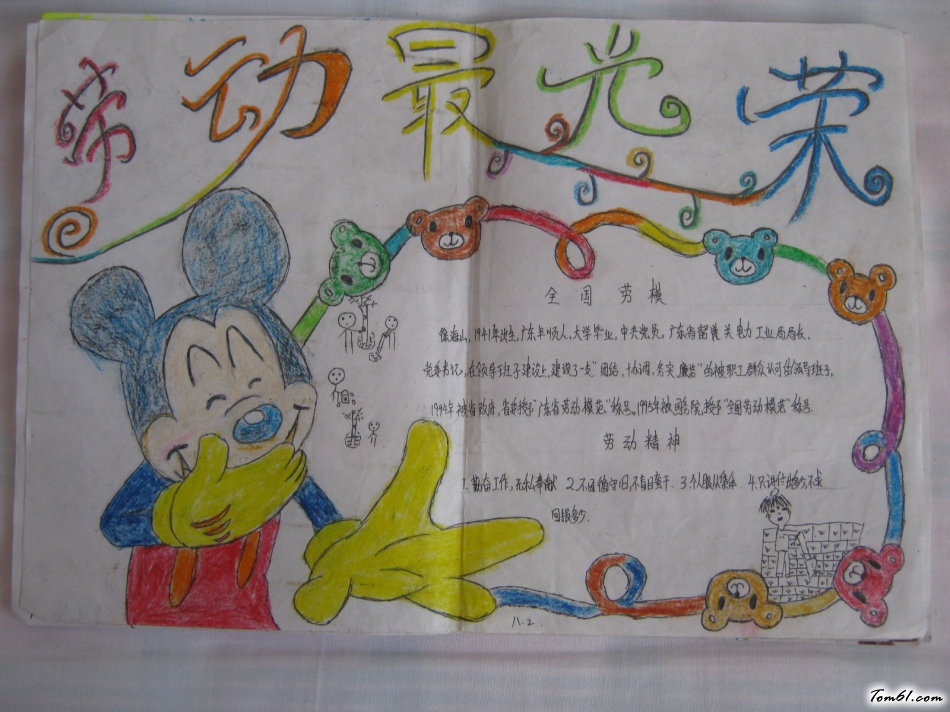 劳动最光荣
全国劳模
徐海山,1941年出生,广东丰顺人,大学毕业,中共党员,广东省韶关电力工业局局长,
党委书记,在领导班子建设上,建设了一支"团结、协调、务实、廉洁"的被职工群众认可的领导班子,
1994年被省政府,省委授予"广东省劳动模范"称号,1995年被国务院授予"全国劳动模范"称号.
劳动精神
1.勤奋工作,无私奉献 2.不因循守旧,不盲目蛮干. 3.个人服从集体 4.只讲付出多少,不求
回报多少.
11.2
Tom61.com